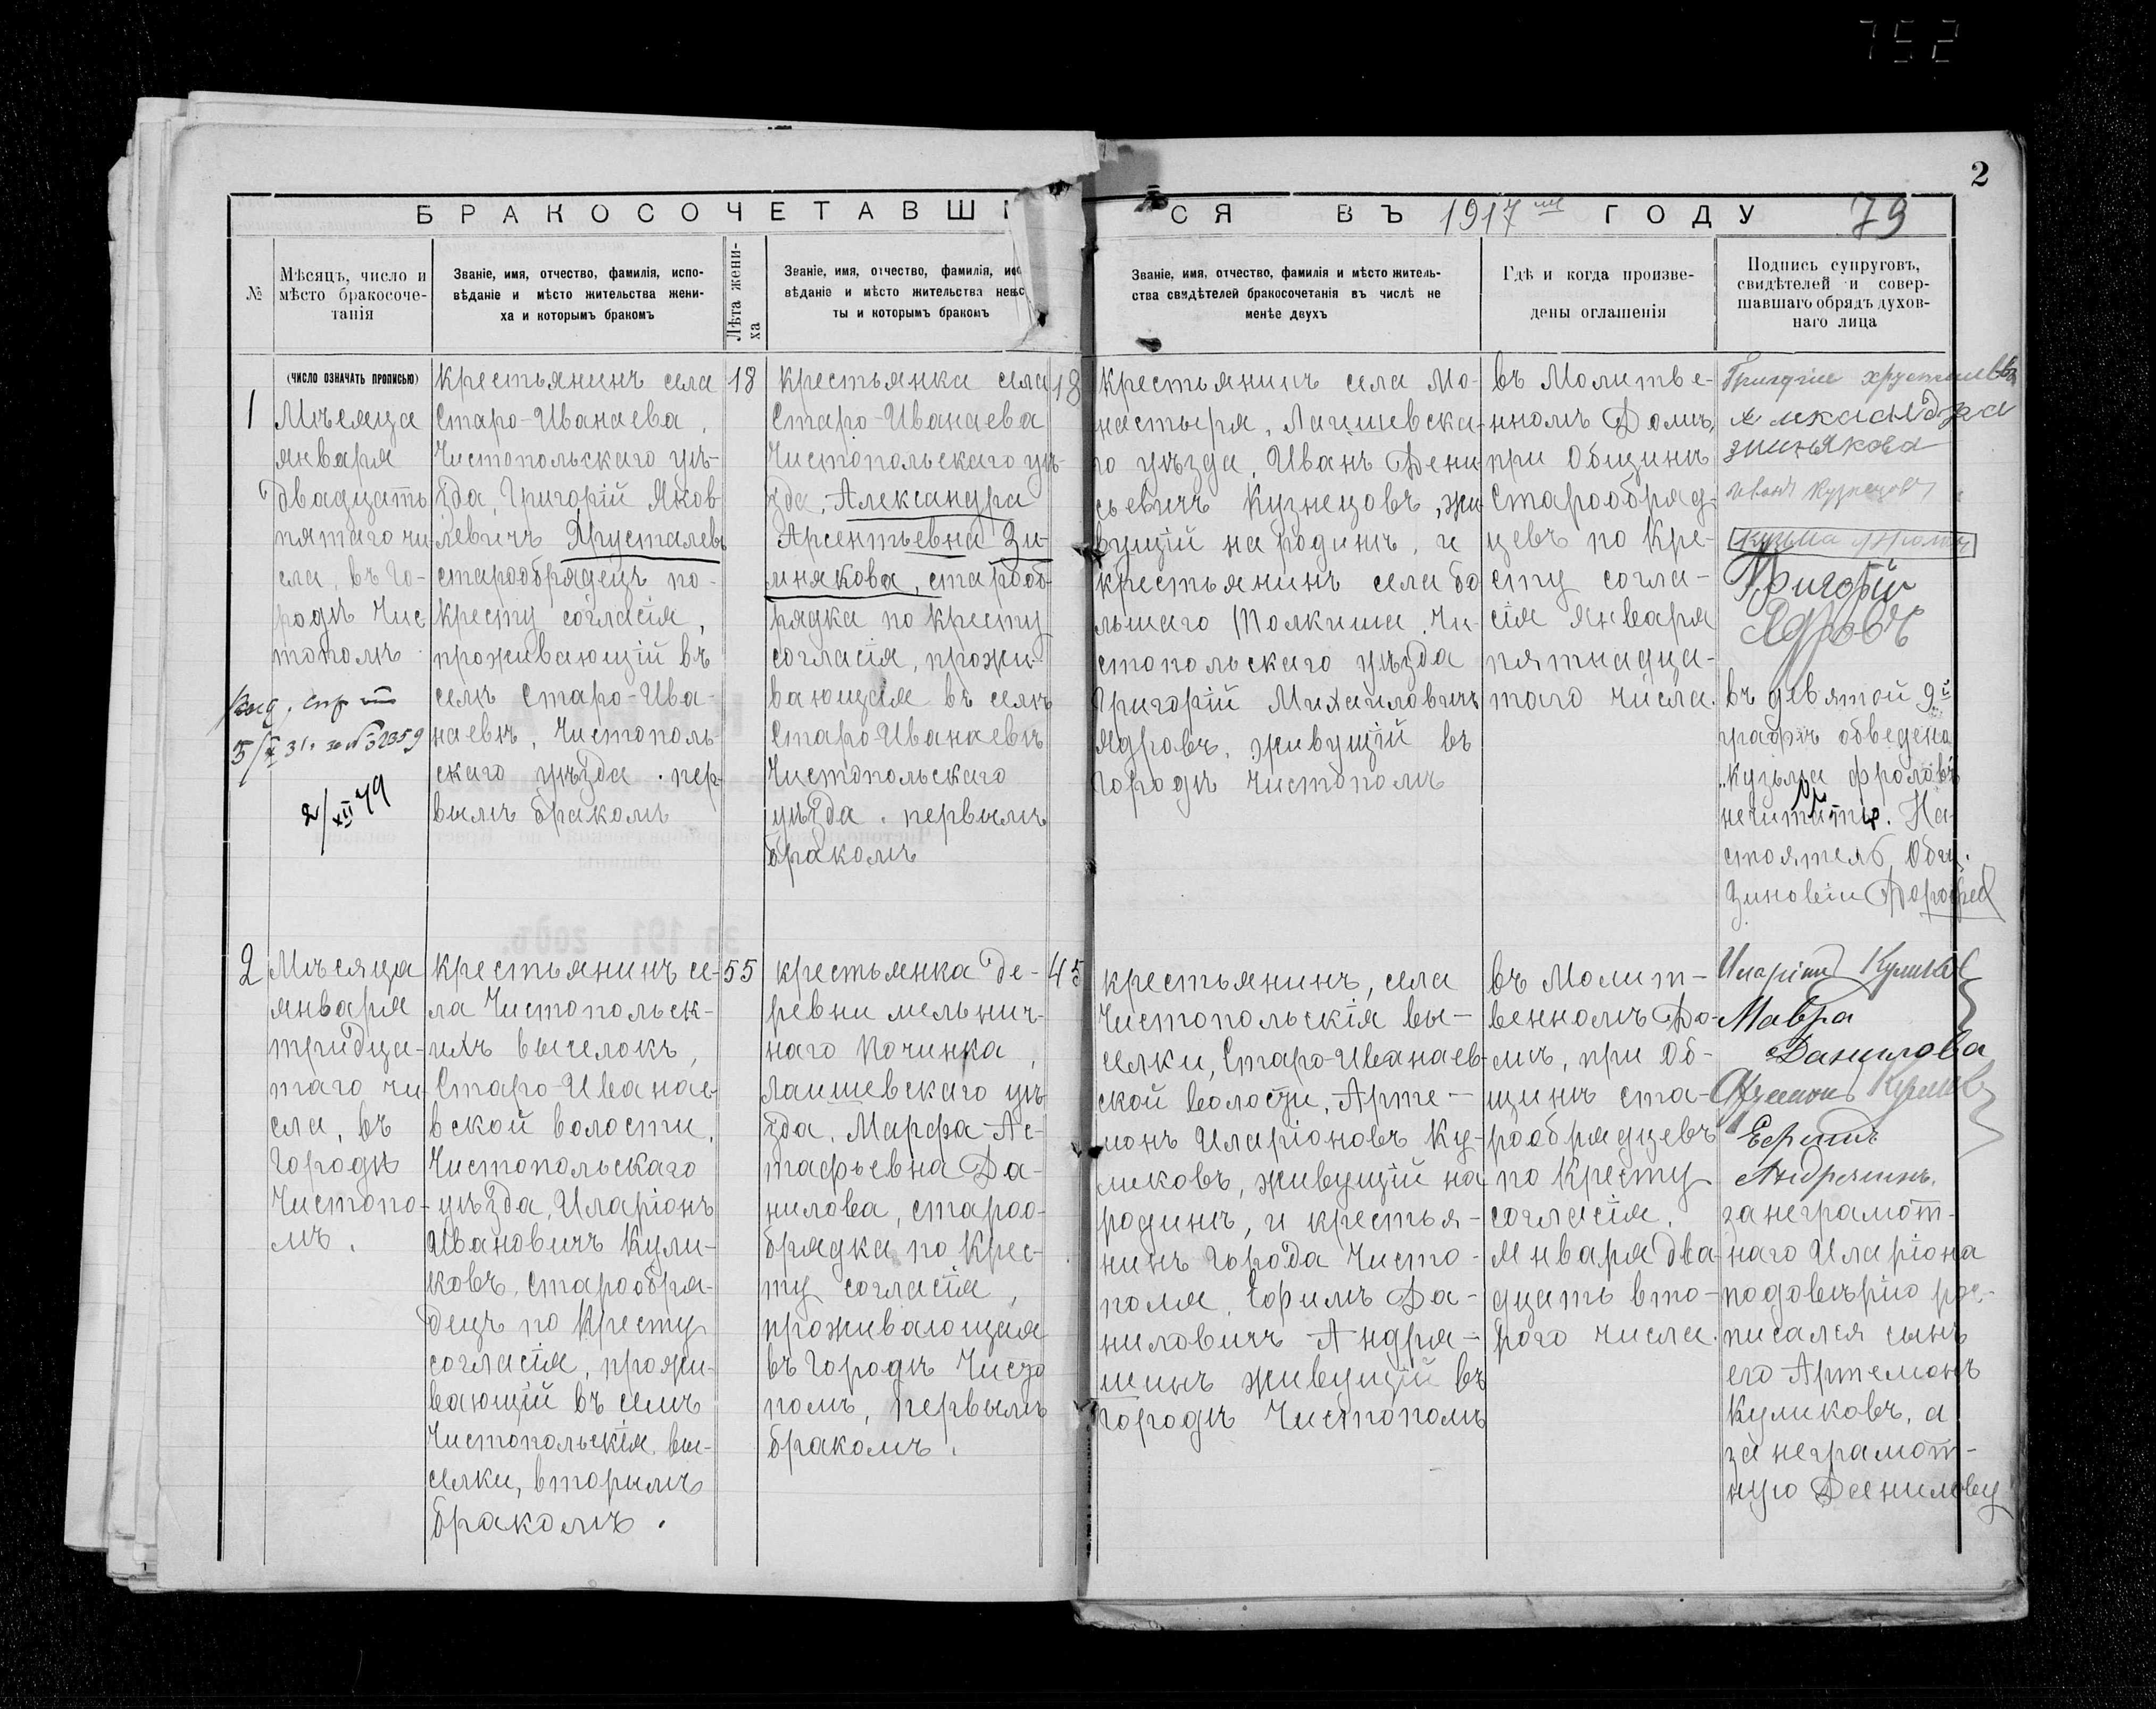 752
2
БРАКОСОЧЕТАВШІ
СЯ ВЪ 1917 ГОДУ 79
№
Мѣсяцъ, число и
мѣсто бракосоче-
танія
Званіе, имя, отчество, фамилія, испо-
вѣданіе и мѣсто жительства жени-
ха и которымъ бракомъ
Лѣта жени-
ха
Званіе, имя, отчество, фамилія, испо
вѣданіе и мѣсто жительства невѣс
ты и которымъ бракомъ
Званіе, имя, отчество, фамилія и мѣсто житель-
ства свидѣтелей бракосочетанія въ числѣ не
менѣе двухъ
Гдѣ и когда произве-
дены оглашенія
Подпись супруговъ,
свидѣтелей и совер-
шавшаго обрядъ духов-
наго лица
(число означать прописью)
1
Мѣсяца
января
двадцать
пятаго чи-
сла, въ го-
родѣ Чис
тополѣ
Выд. спр
5/X 31. за № 32359
2/XII 49
крестьянинъ села
Старо-Иванаева,
Чистопольскаго уѣ-
зда, Григорій Яков
левичъ Хрусталевъ
старообрядецъ по-
кресту согласія,
проживающій въ
селѣ Старо-Ива-
наевѣ, Чистополь-
скаго уѣзда. пер-
вымъ бракомъ
18
крестьянка села
Старо-Иванаева
Чистопольскаго уѣ-
зда, Александра
Арсентьевна Зи-
мнякова, старооб-
рядка по кресту
согласія, прожи-
вающая въ селѣ
Старо-Иванаевѣ
Чистопольскаго
уѣзда. первымъ
бракомъ
18
крестьянинъ села Мо-
настыря, Лаишевска-
го уѣзда, Иванъ Дени-
сьевичъ Кузнецовъ, жи-
вущій на родинѣ, и
крестьянинъ села бо
льшаго Толкиша, Чи-
стопольскаго уѣзда
Григорій Михаиловичъ
Ядровъ, живущій въ
городѣ Чистополѣ
въ Молитве-
нномъ Домѣ,
при Общинѣ
Старообряд-
цевъ по Кре-
сту согла-
сія января
пятнадца-
таго числа.
Григорие хрусталевъ
Алкасандра
зимнякова
Иванъ Кузнецовъ
Кузьма Фролов
Григорій
Ядровъ
въ девятой 9й
графѣ обведено
„Кузьма Фроловъ
нечитать. На-
стоятель Общ.
Зиновіи Дорофеев
2
Мѣсяца
января
тридца-
таго чи-
сла, въ
городѣ
Чистопо-
лѣ.
крестьянинъ се-
ла Чистопольск-
ихъ выселокъ,
Старо-Иванае-
вской волости,
Чистопольскаго
уѣзда, Иларіонъ
Ивановичъ Кули-
ковъ, старообря-
децъ по Кресту
согласія, прожи-
вающій въ селѣ
Чистопольскія вы-
селки, вторымъ
бракомъ.
55
крестьянка де-
ревни мельнич-
наго Починка,
Лаишевскаго уѣ-
зда, Марфа Ас-
тафьевна Да-
нилова, староо-
брядка, по Крес-
ту согласія,
проживающая
въ городѣ Чисто
полѣ, первымъ
бракомъ.
45
крестьянинъ, села
Чистопольскія вы-
селки, Старо-Иванаев-
ской волости, Арте-
монъ Иларіоновъ Ку-
ликовъ, живущій на
родинѣ, и крестья-
нинъ города Чисто-
поля, Ефимъ Да-
ниловичъ Андря-
шинъ живущій въ
городѣ Чистополѣ
въ Молит-
венномъ До-
мѣ, при Об-
щинѣ ста-
рообрядцевъ
по Кресту
согласія.
Января два-
дцать вто-
рого числа.
Иларіонъ Куликов
Мавра
Данилова
Куликов
Ефимъ
Андряшинъ.
за неграмот-
наго Иларіона
подовѣрію рос-
писался сынъ
его Артемонъ
Куликовъ, а
за неграмот-
ную Данилову